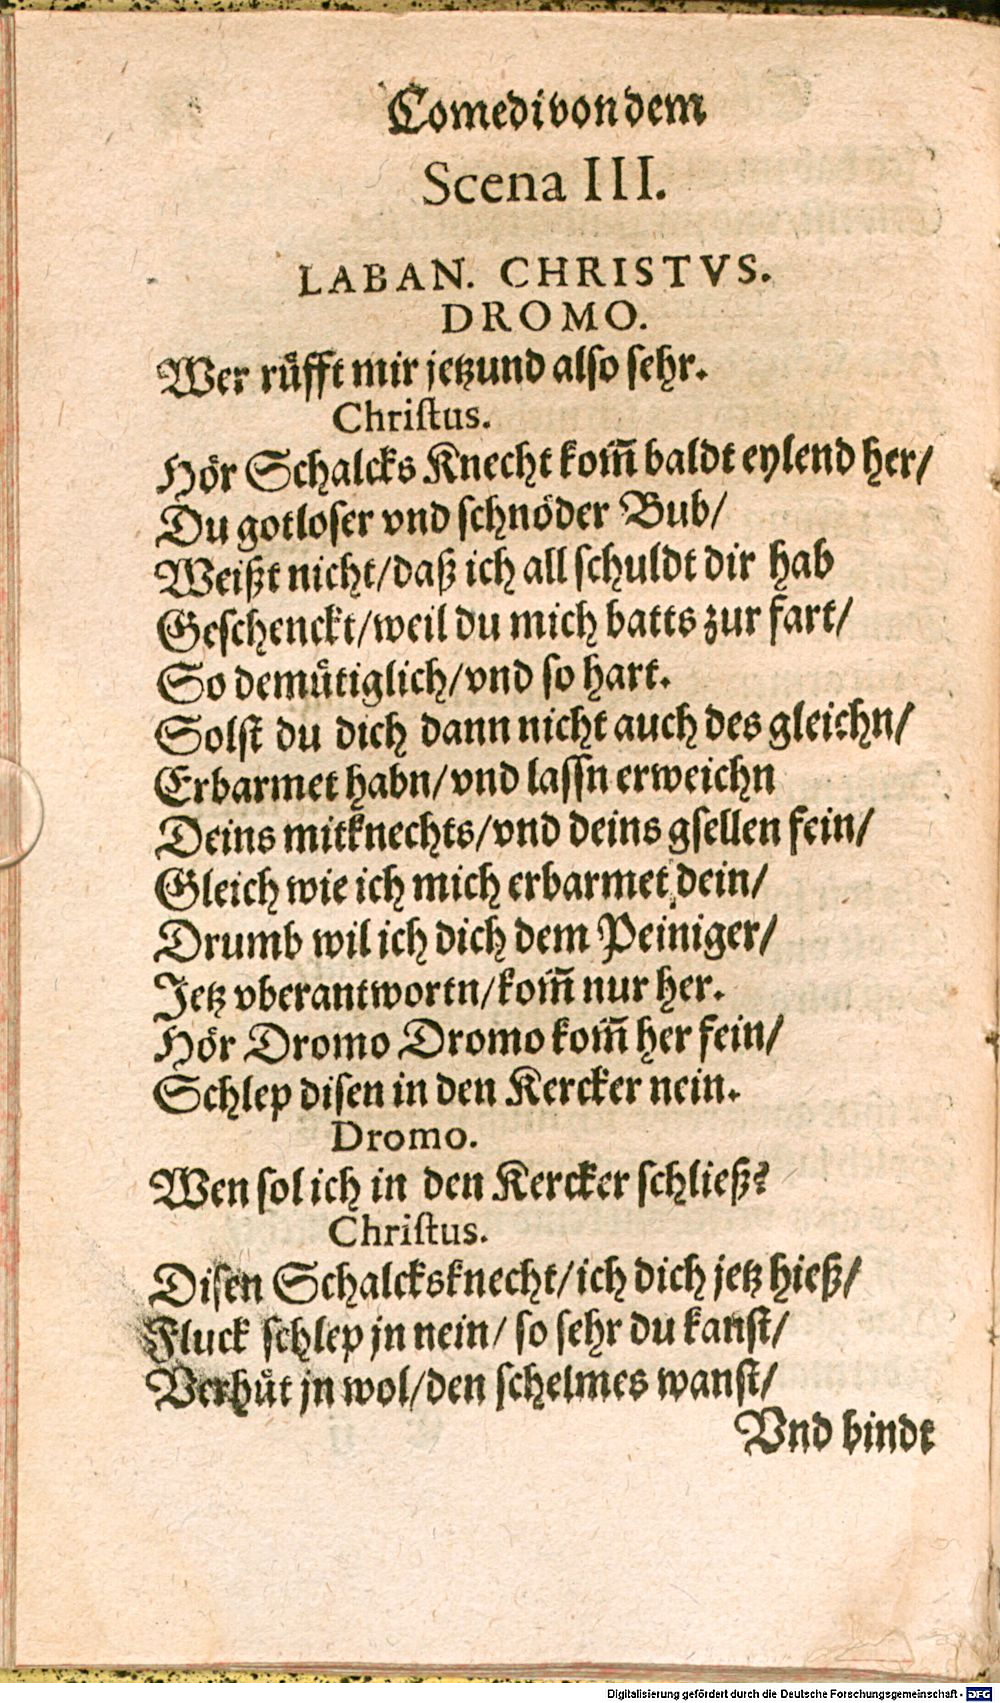 Comedi von dem
Scena III.
LABAN. CHRISTVS.
DROMO.
Wer ruͤfft mir jetzund also sehr.
Christus.
Hoͤr Schalcks Knecht kom̃ baldt eylend her/
Du gotloser vnd schnoͤder Bub/
Weißt nicht/daß ich all schuldt dir hab
Geschenckt/weil du mich batts zur fart/
So demuͤtiglich/vnd so hart.
Solst du dich dann nicht auch des gleichn/
Erbarmet habn/vnd lassn erweichn
Deins mitknechts/vnd deins gsellen fein/
Gleich wie ich mich erbarmet dein/
Drumb wil ich dich dem Peiniger/
Jetz vberantwortn/kom̃ nur her.
Hoͤr Dromo Dromo kom̃ her fein/
Schlep disen in den Kercker nein.
Dromo.
Wen sol ich in den Kercker schließ?
Christus.
Disen Schalcksknecht/ich dich jetz hieß/
Fluck schlep jn nein/ so sehr du kanst/
Verhuͤt jn wol/den schelmes wanst/
Vnd bindt
Digitalisierung gefördert durch die Deutsche Forschungsgemeinschaft - DFG